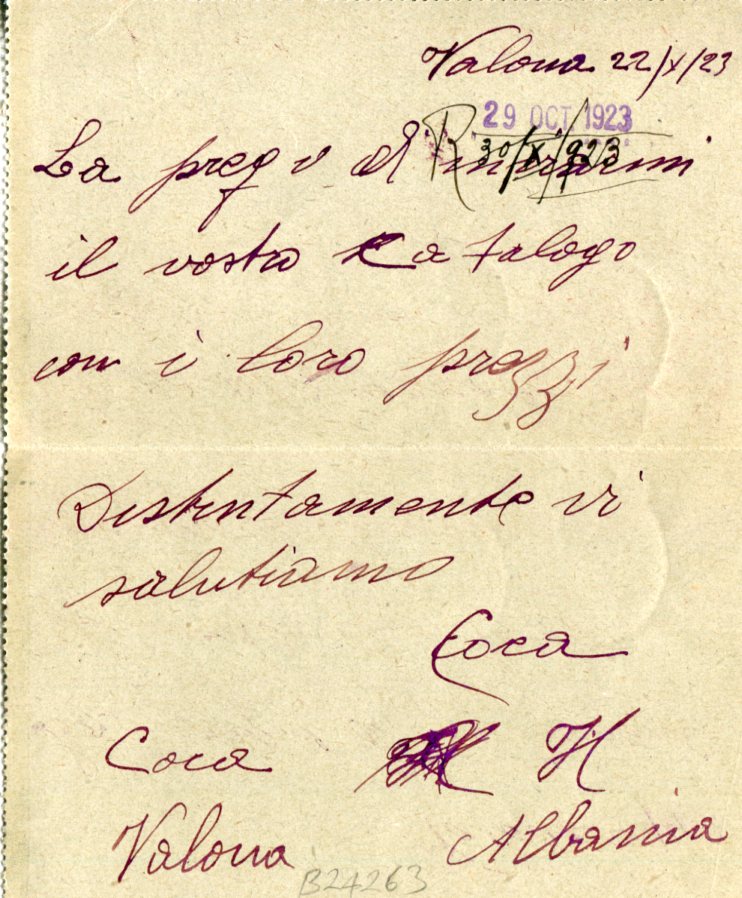 Valona 22/X/23
29 OCT 1923
R 30/X/923
La prego di inviarmi
il vostro catalogo
con i loro prezzi
Distintamente vi
salutiamo
Coca
Coca H
Valona Albania
B24263